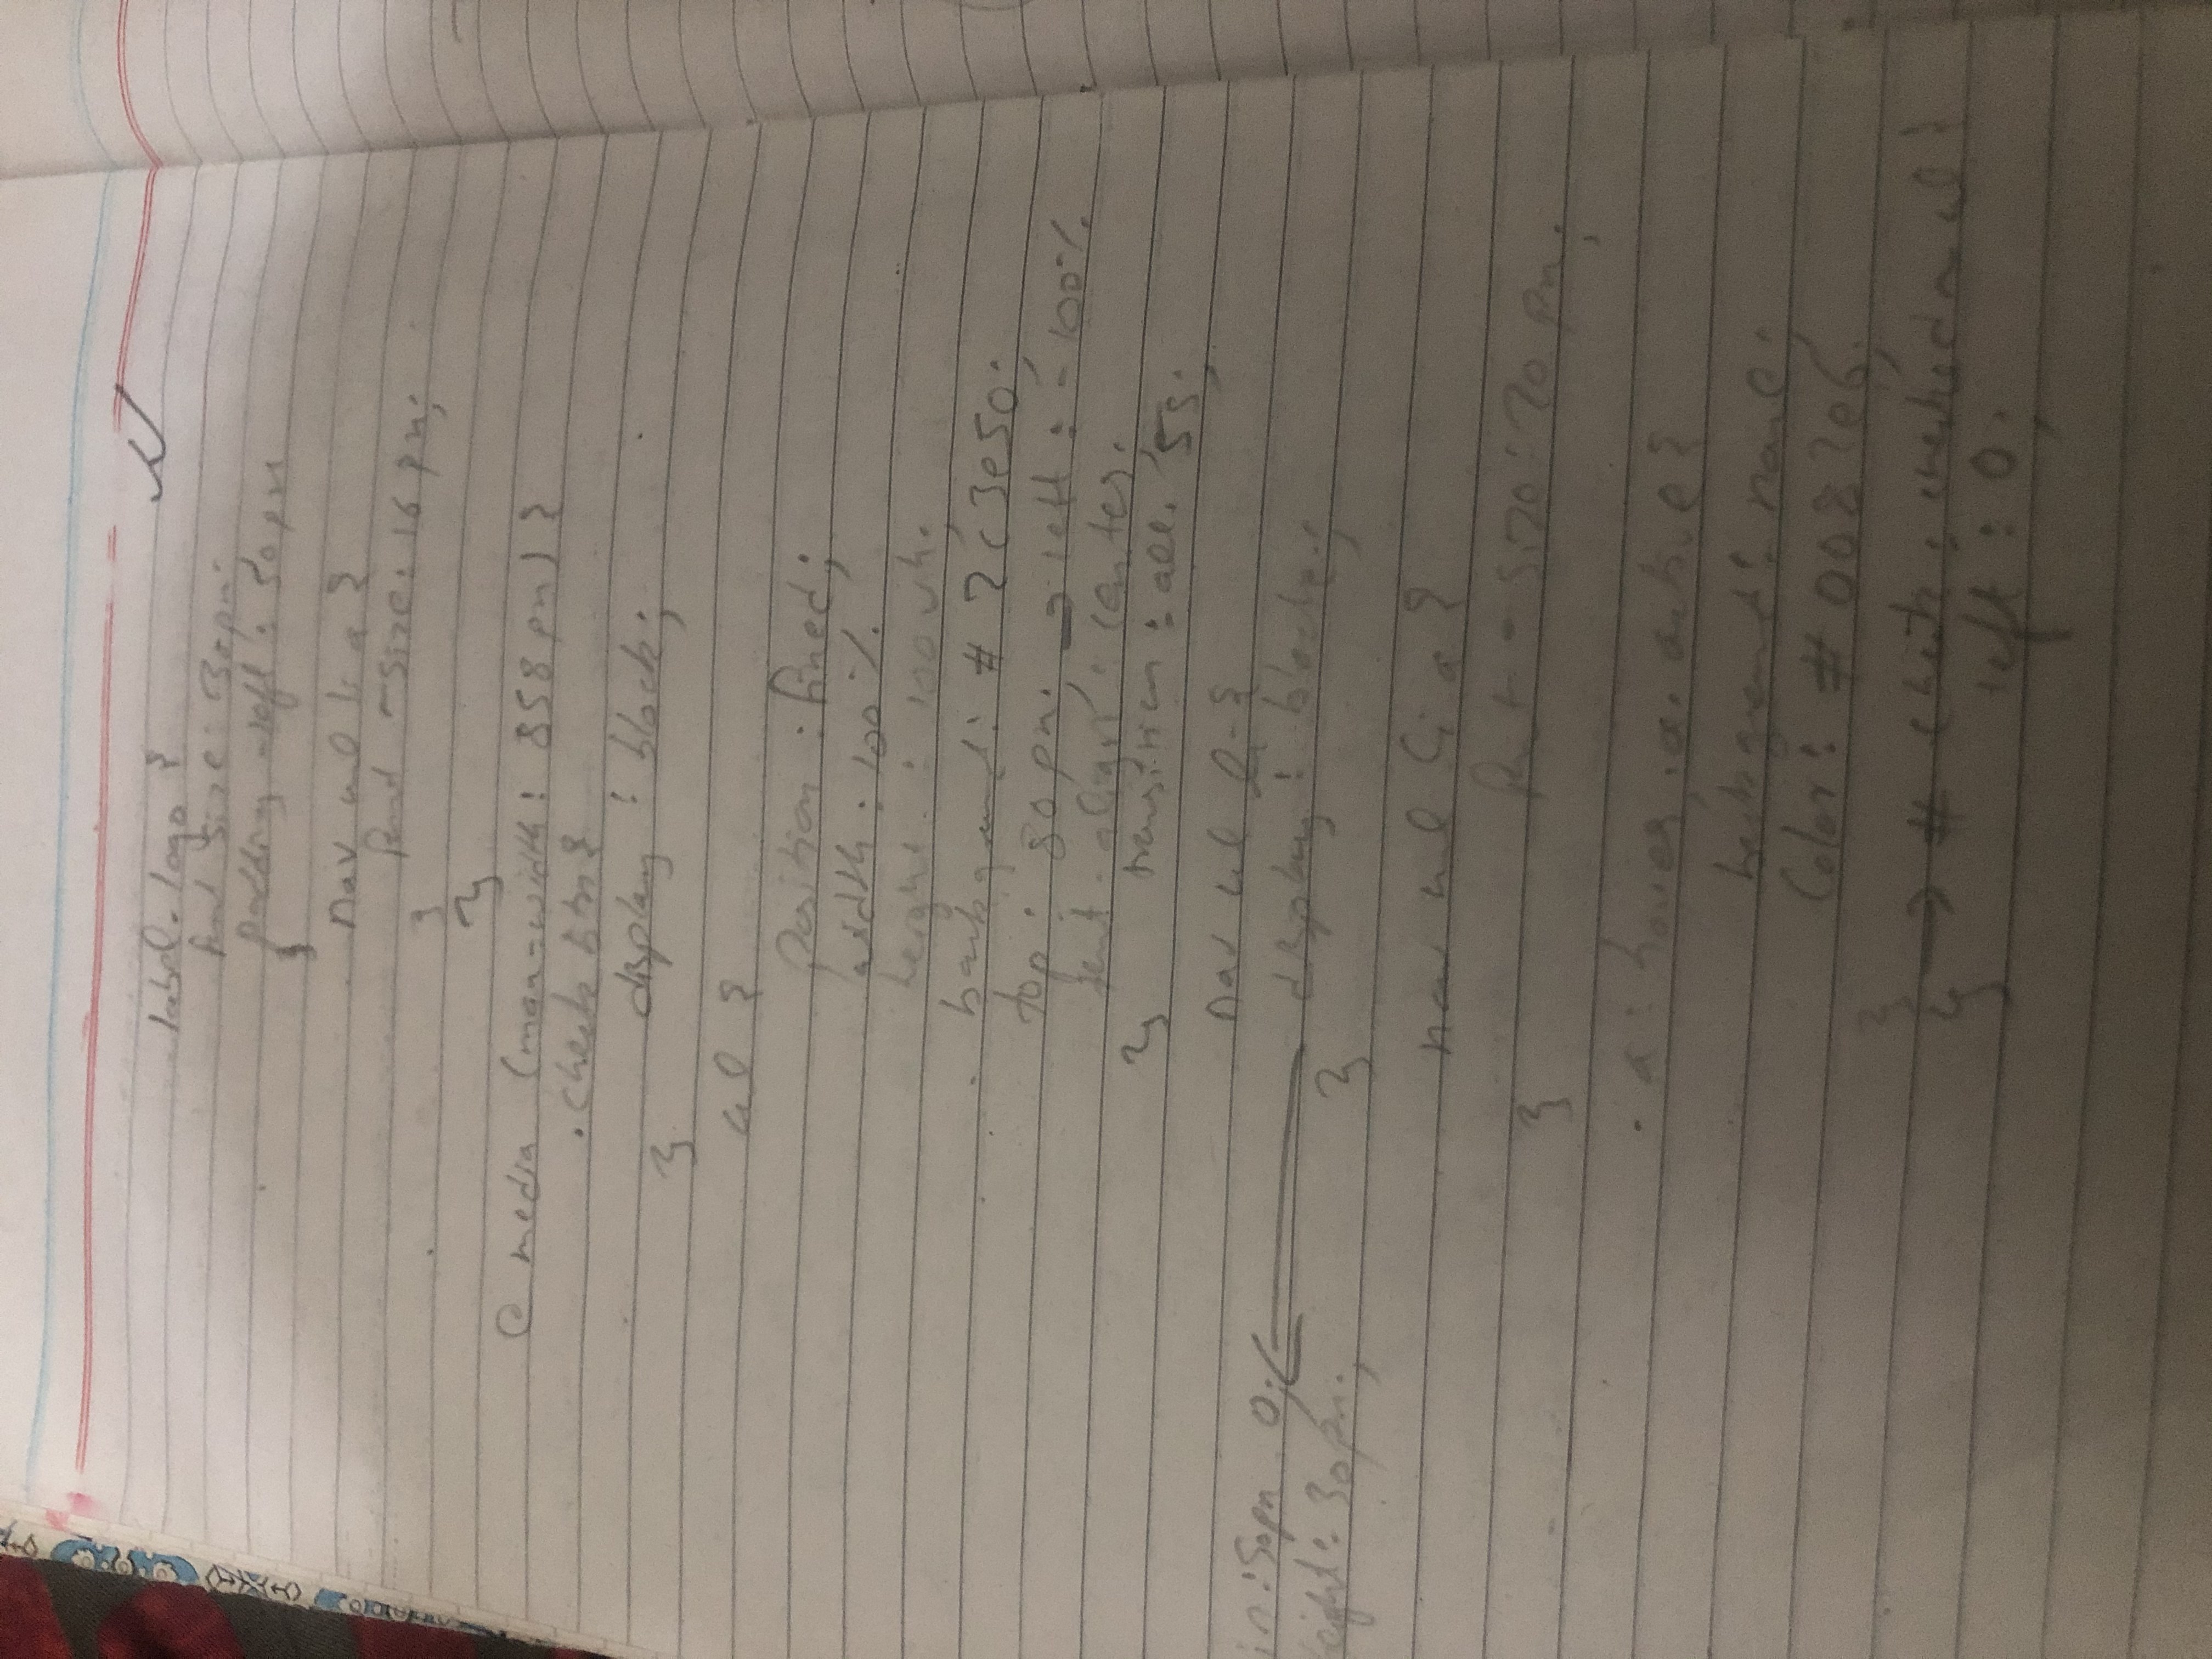 label.logo {
font size: 30px;
padding-left: 50px
}
nav ul li a {
font-size: 16px;
}
}
@media (max-width: 858px) {
.checkbtn {
display: block;
}
ul {
position: fixed;
width: 100%
height: 100vh;
background: #2c3e50;
top: 80px; → left: -100%
text-align: center;
transition: all .5s;
}
nav ul li {
display: block;
in: 50px 0;
height: 30px;
}
nav ul li a {
font-size: 20px;
}
a:hover, a.active {
background: none;
color: #0082e6;
}
} → #check:checked ~ ul {
left: 0;